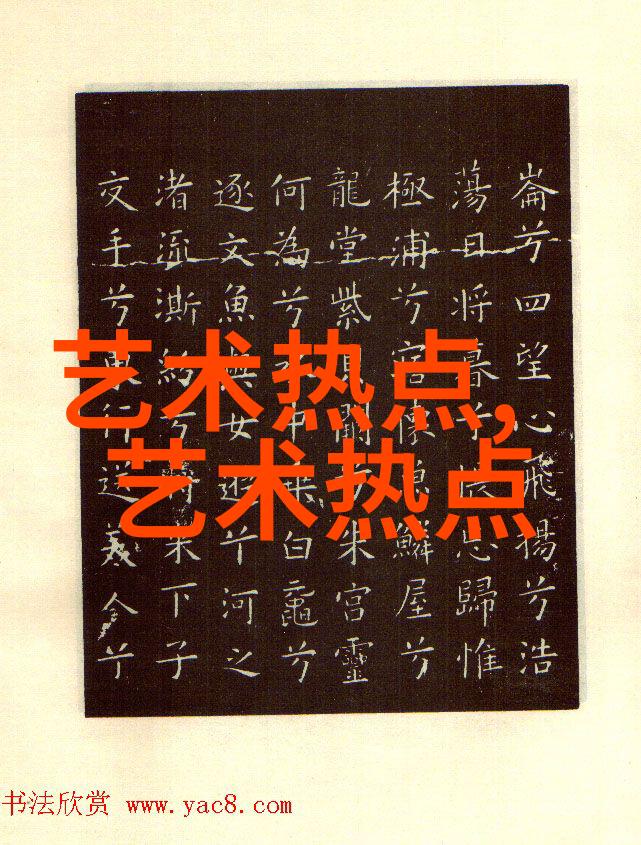 崙兮四望心飛揚兮浩
蕩日將暮歸惟
極浦兮懷鱗屋兮
龍堂紫朱宮靈
何為兮中乘白黿兮
逐文魚與女遊兮河之
渚流澌紛兮將来下子
交手兮東行送美人兮
艺术热点,
艺术热点
书法欣赏 www.yac8.com